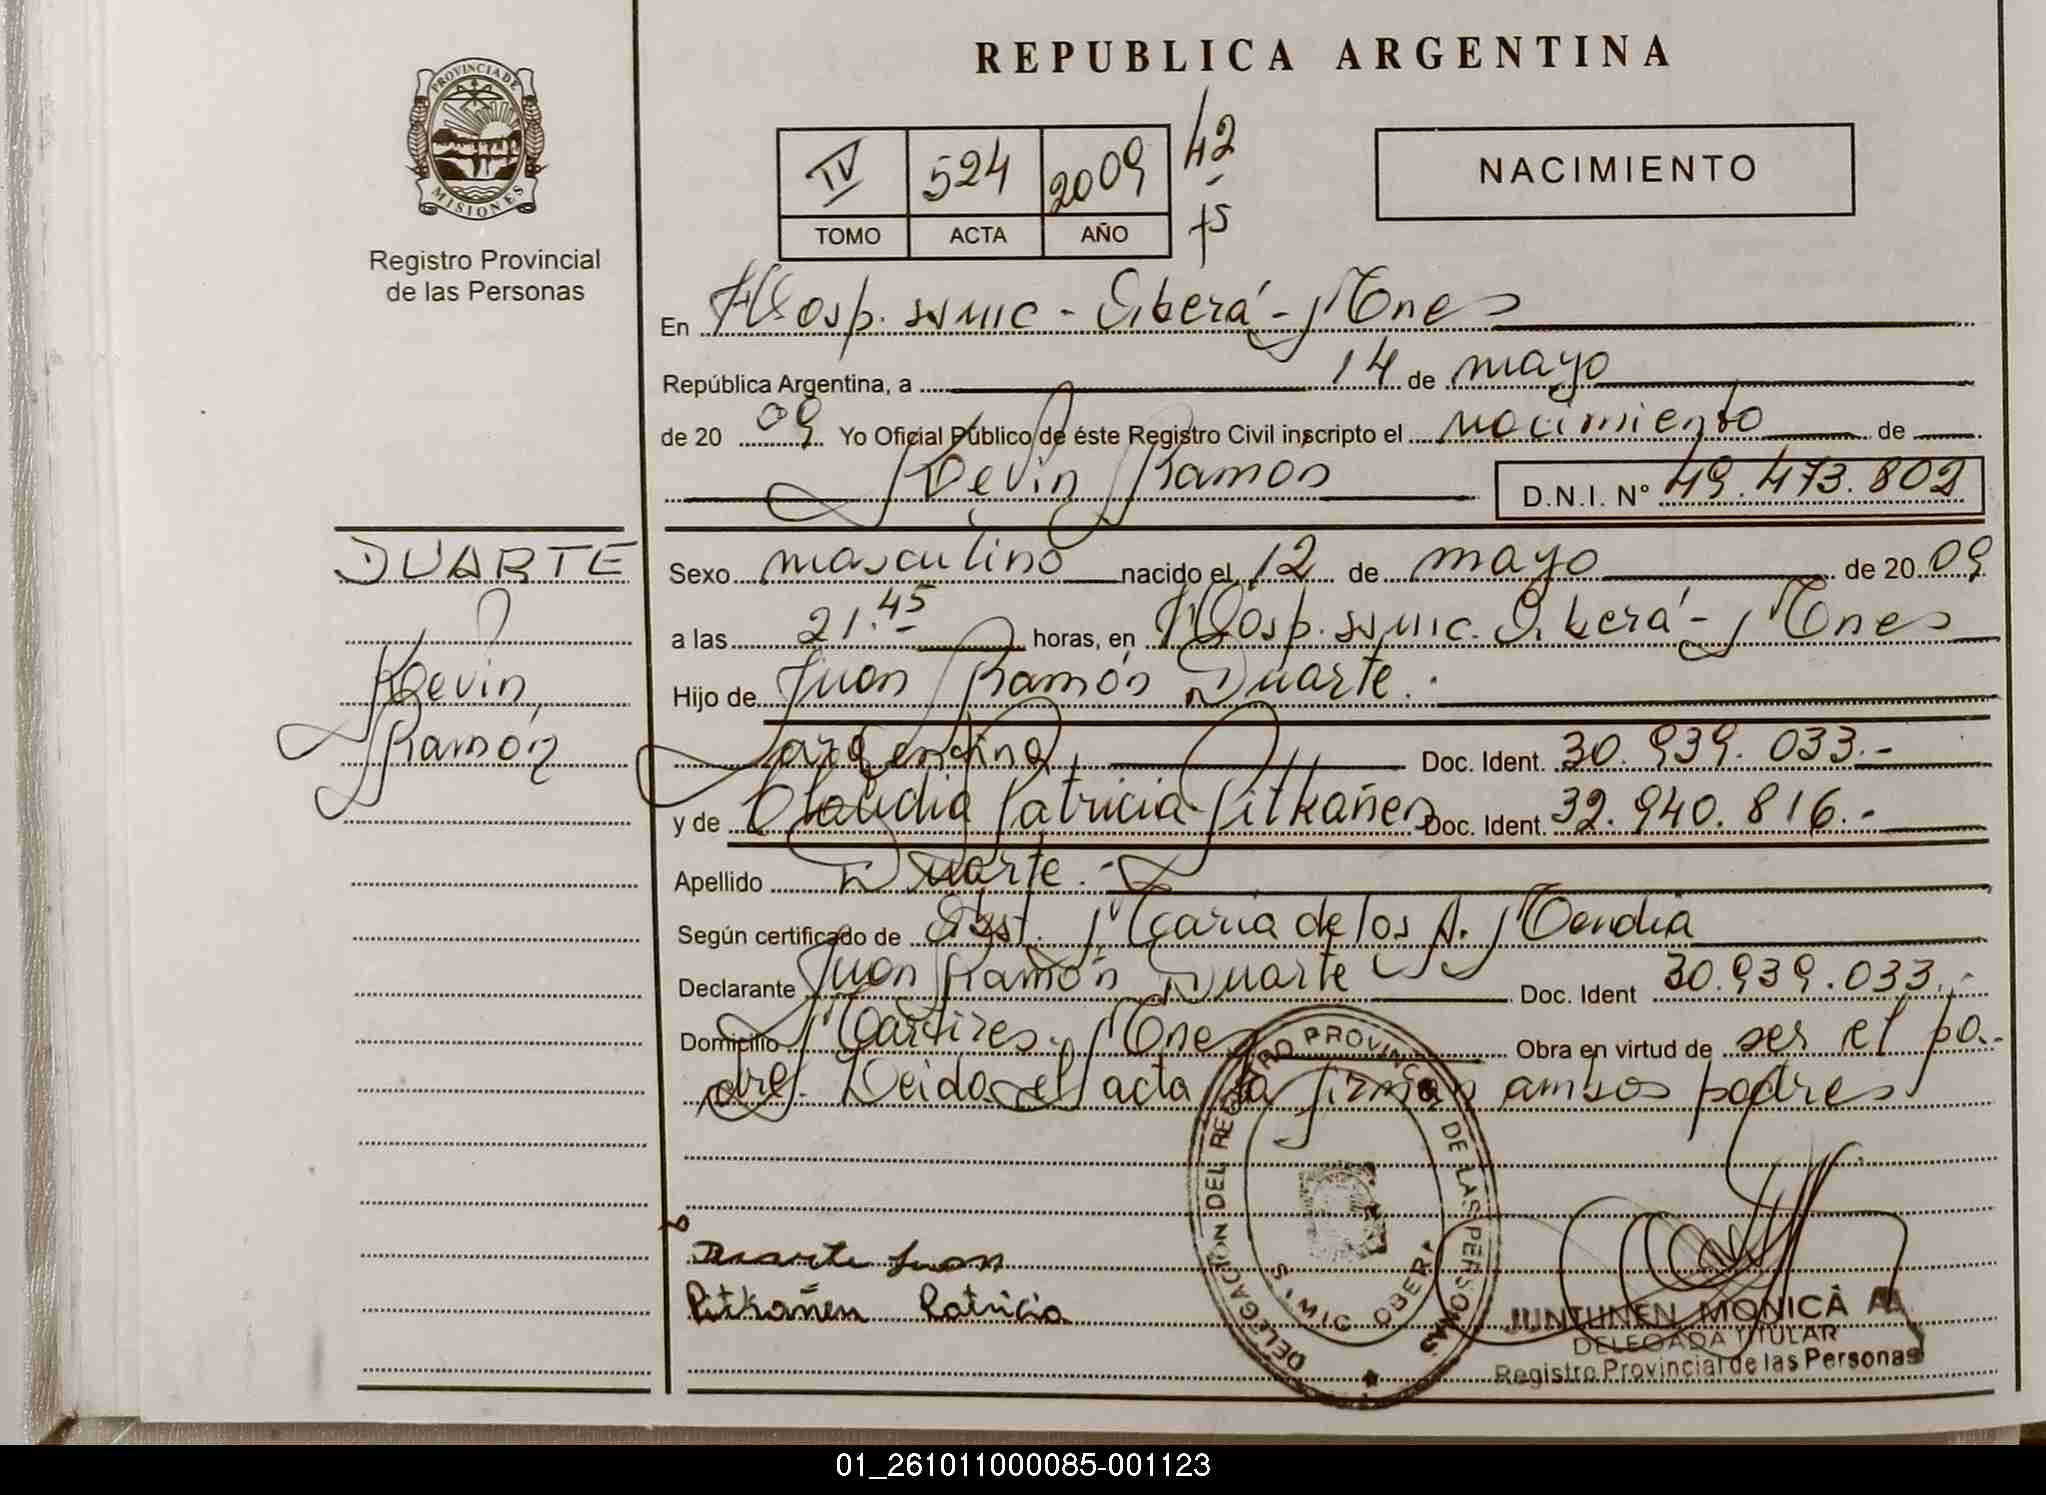 REPUBLICA ARGENTINA
PROVINCIA DE MISIONES
Registro Provincial
de las Personas
IV 524 2009
TOMO ACTA AÑO
NACIMIENTO
En Hosp. SS MIC - Oberá - Mnes
República Argentina, a 14 de mayo
de 20 09 Yo Oficial Público de éste Registro Civil inscripto el nacimiento de
Kevin Ramón
D.N.I. N° 49.473.802
DUARTE
Kevin
Ramón
Sexo masculino nacido el 12 de mayo de 20 09
a las 21.45 horas, en Hosp. SS MIC. Oberá - Mnes
Hijo de Juan Ramón Duarte.
argentina Doc. Ident. 30.939.033.-
y de Claudia Patricia Pitkäñen Doc. Ident. 32.940.816.-
Apellido Duarte.-
Según certificado de Obst. María de los A. Mendia
Declarante Juan Ramón Duarte Doc. Ident 30.939.033.-
Domicilio Mártires. Mnes Obra en virtud de ser el pa-
dre. Leida el acta la firman ambos padres
Duarte Juan
Pitkañen Patricia
DELEGACION DEL REGISTRO PROVINCIAL DE LAS PERSONAS
S/MIC OBERA
JUNTUNEN MONICA
DELEGADA TITULAR
Registro Provincial de las Personas
01_261011000085-001123